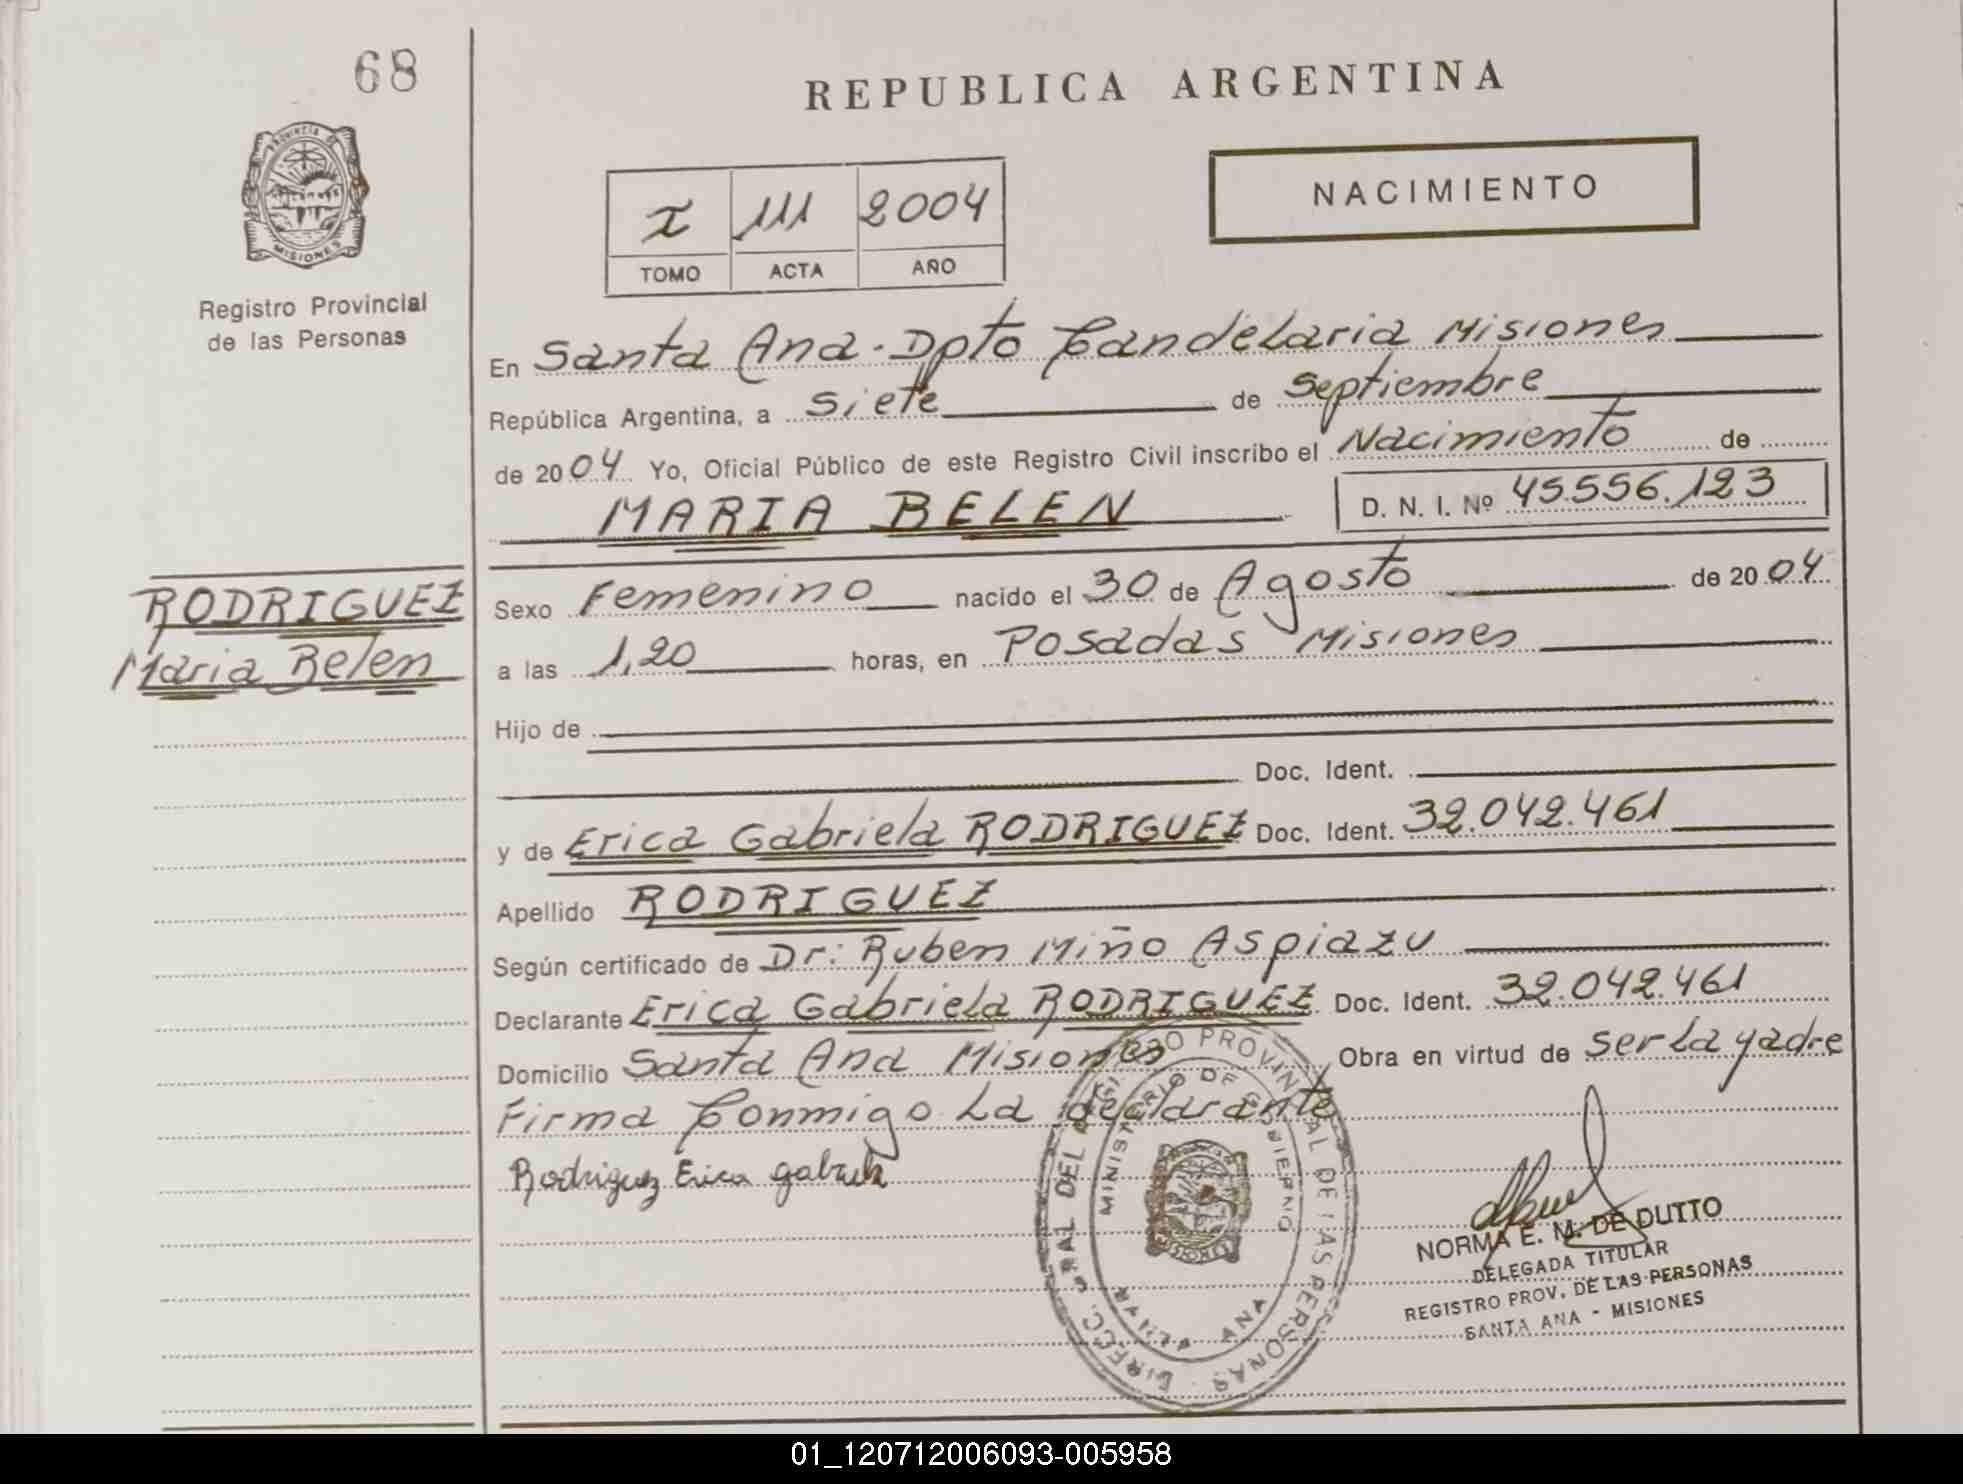 68
REPUBLICA ARGENTINA
PROVINCIA DE
MISIONES
Registro Provincial
de las Personas
I 111 2004
TOMO ACTA AÑO
NACIMIENTO
En Santa Ana - Dpto Candelaria Misiones
República Argentina, a siete de septiembre
de 2004 Yo, Oficial Público de este Registro Civil inscribo el Nacimiento de
MARIA BELEN D. N. I. Nº 45.556.123
RODRIGUEZ
Maria Belen
Sexo Femenino nacido el 30 de Agosto de 2004
a las 1,20 horas, en Posadas Misiones
Hijo de
Doc. Ident.
y de Erica Gabriela RODRIGUEZ Doc. Ident. 32.042.461
Apellido RODRIGUEZ
Según certificado de Dr: Ruben Miño Aspiazu
Declarante Erica Gabriela RODRIGUEZ Doc. Ident. 32.042.461
Domicilio Santa Ana Misiones Obra en virtud de ser la yadre
Firma Conmigo La declarante
Rodriguez Erica gabriela
PROVINCIAL DE LAS PERSONAS
MINISTERIO DE GOBIERNO
ANA
NORMA E. M. DE DUTTO
DELEGADA TITULAR
REGISTRO PROV. DE LAS PERSONAS
SANTA ANA - MISIONES
01_120712006093-005958